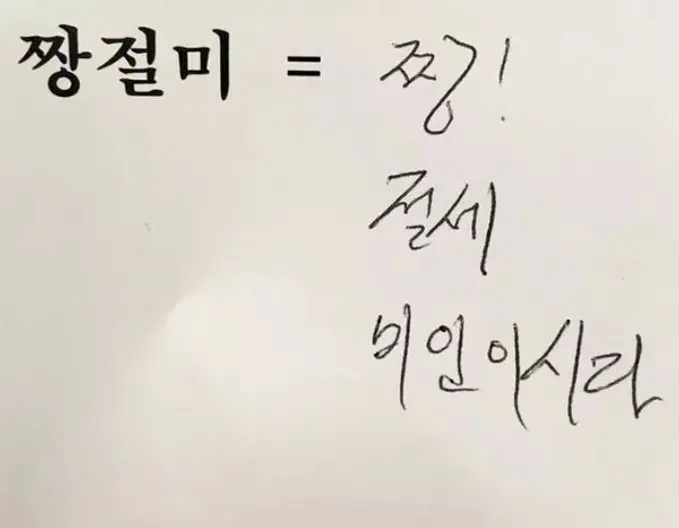 짱절미 = 찡!
절세
미인아시라